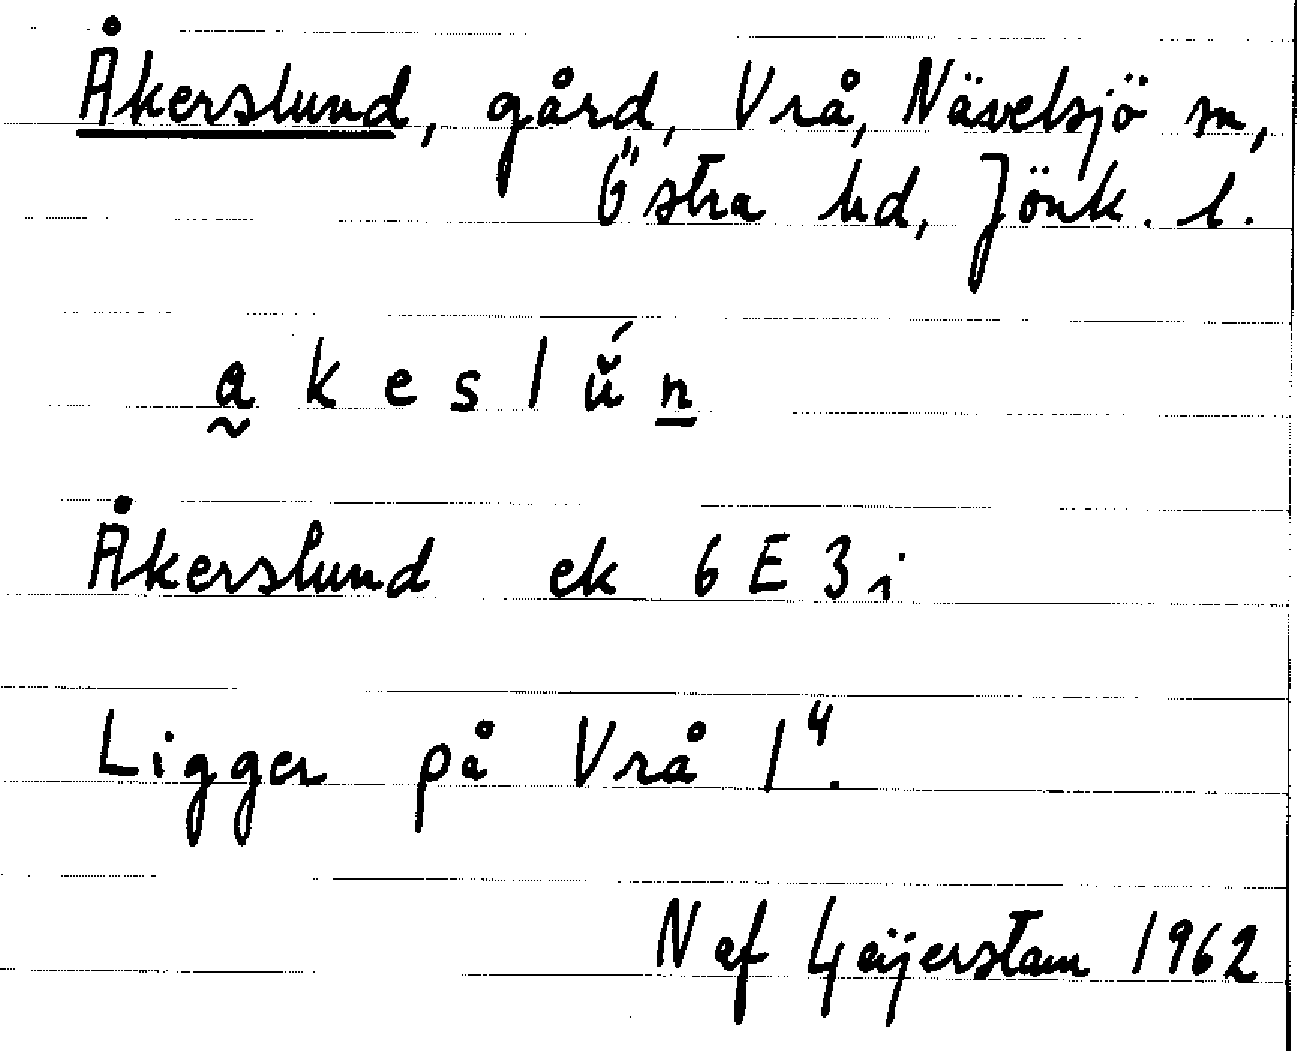 Åkerslund, gård, Vrå, Nävelsjö sn,
Östra hd, Jönk. l.
a̰ k e s l ŭ́ n̲
Åkerslund ek 6 E 3 i
Ligger på Vrå 1⁴.
N af Geijerstam 1962